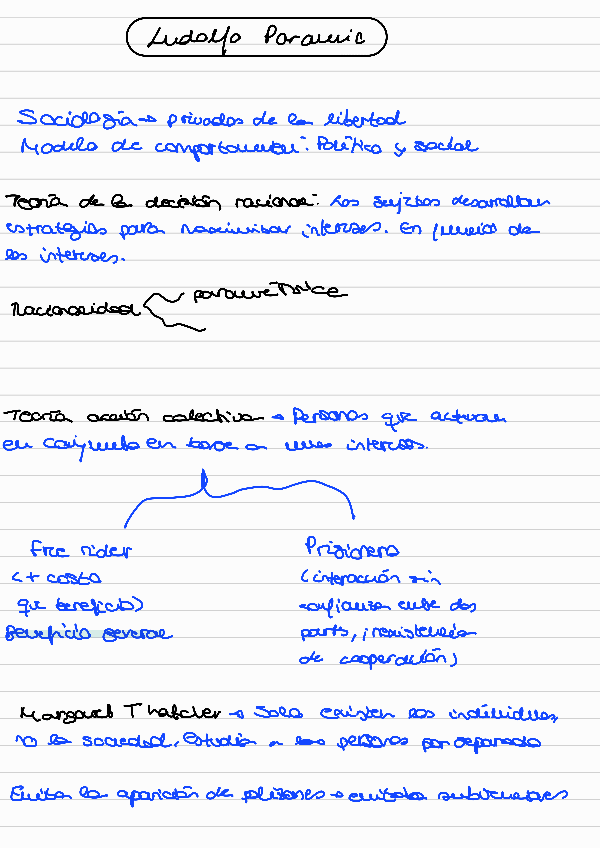 Ludolfo Paramio
Sociología → privados de la libertad
Modelo de comportamiento: Político y social
Teoría de la decisión racional: Los sujetos desarrollan
estrategias para maximizar intereses. En función de
los intereses.
Racionalidad parametrica
Teoría acción colectiva → Personas que actuan
en conjunto en base a unos intereses.
Free rider
(+ costo
que beneficio)
Beneficio general
Prisionero
(interacción sin
confianza entre dos
parts, inexistencia
de cooperación)
Margaret Thatcher → Solo existen los individuos,
no la sociedad. Estudia a las personas por separado
Evita la aparición de → evitala